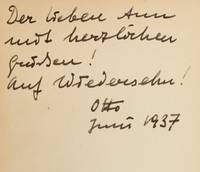 Der lieben Ann
mit herzlichen
Grüßen!
Auf Wiedersehn!
Otto
Juni 1937